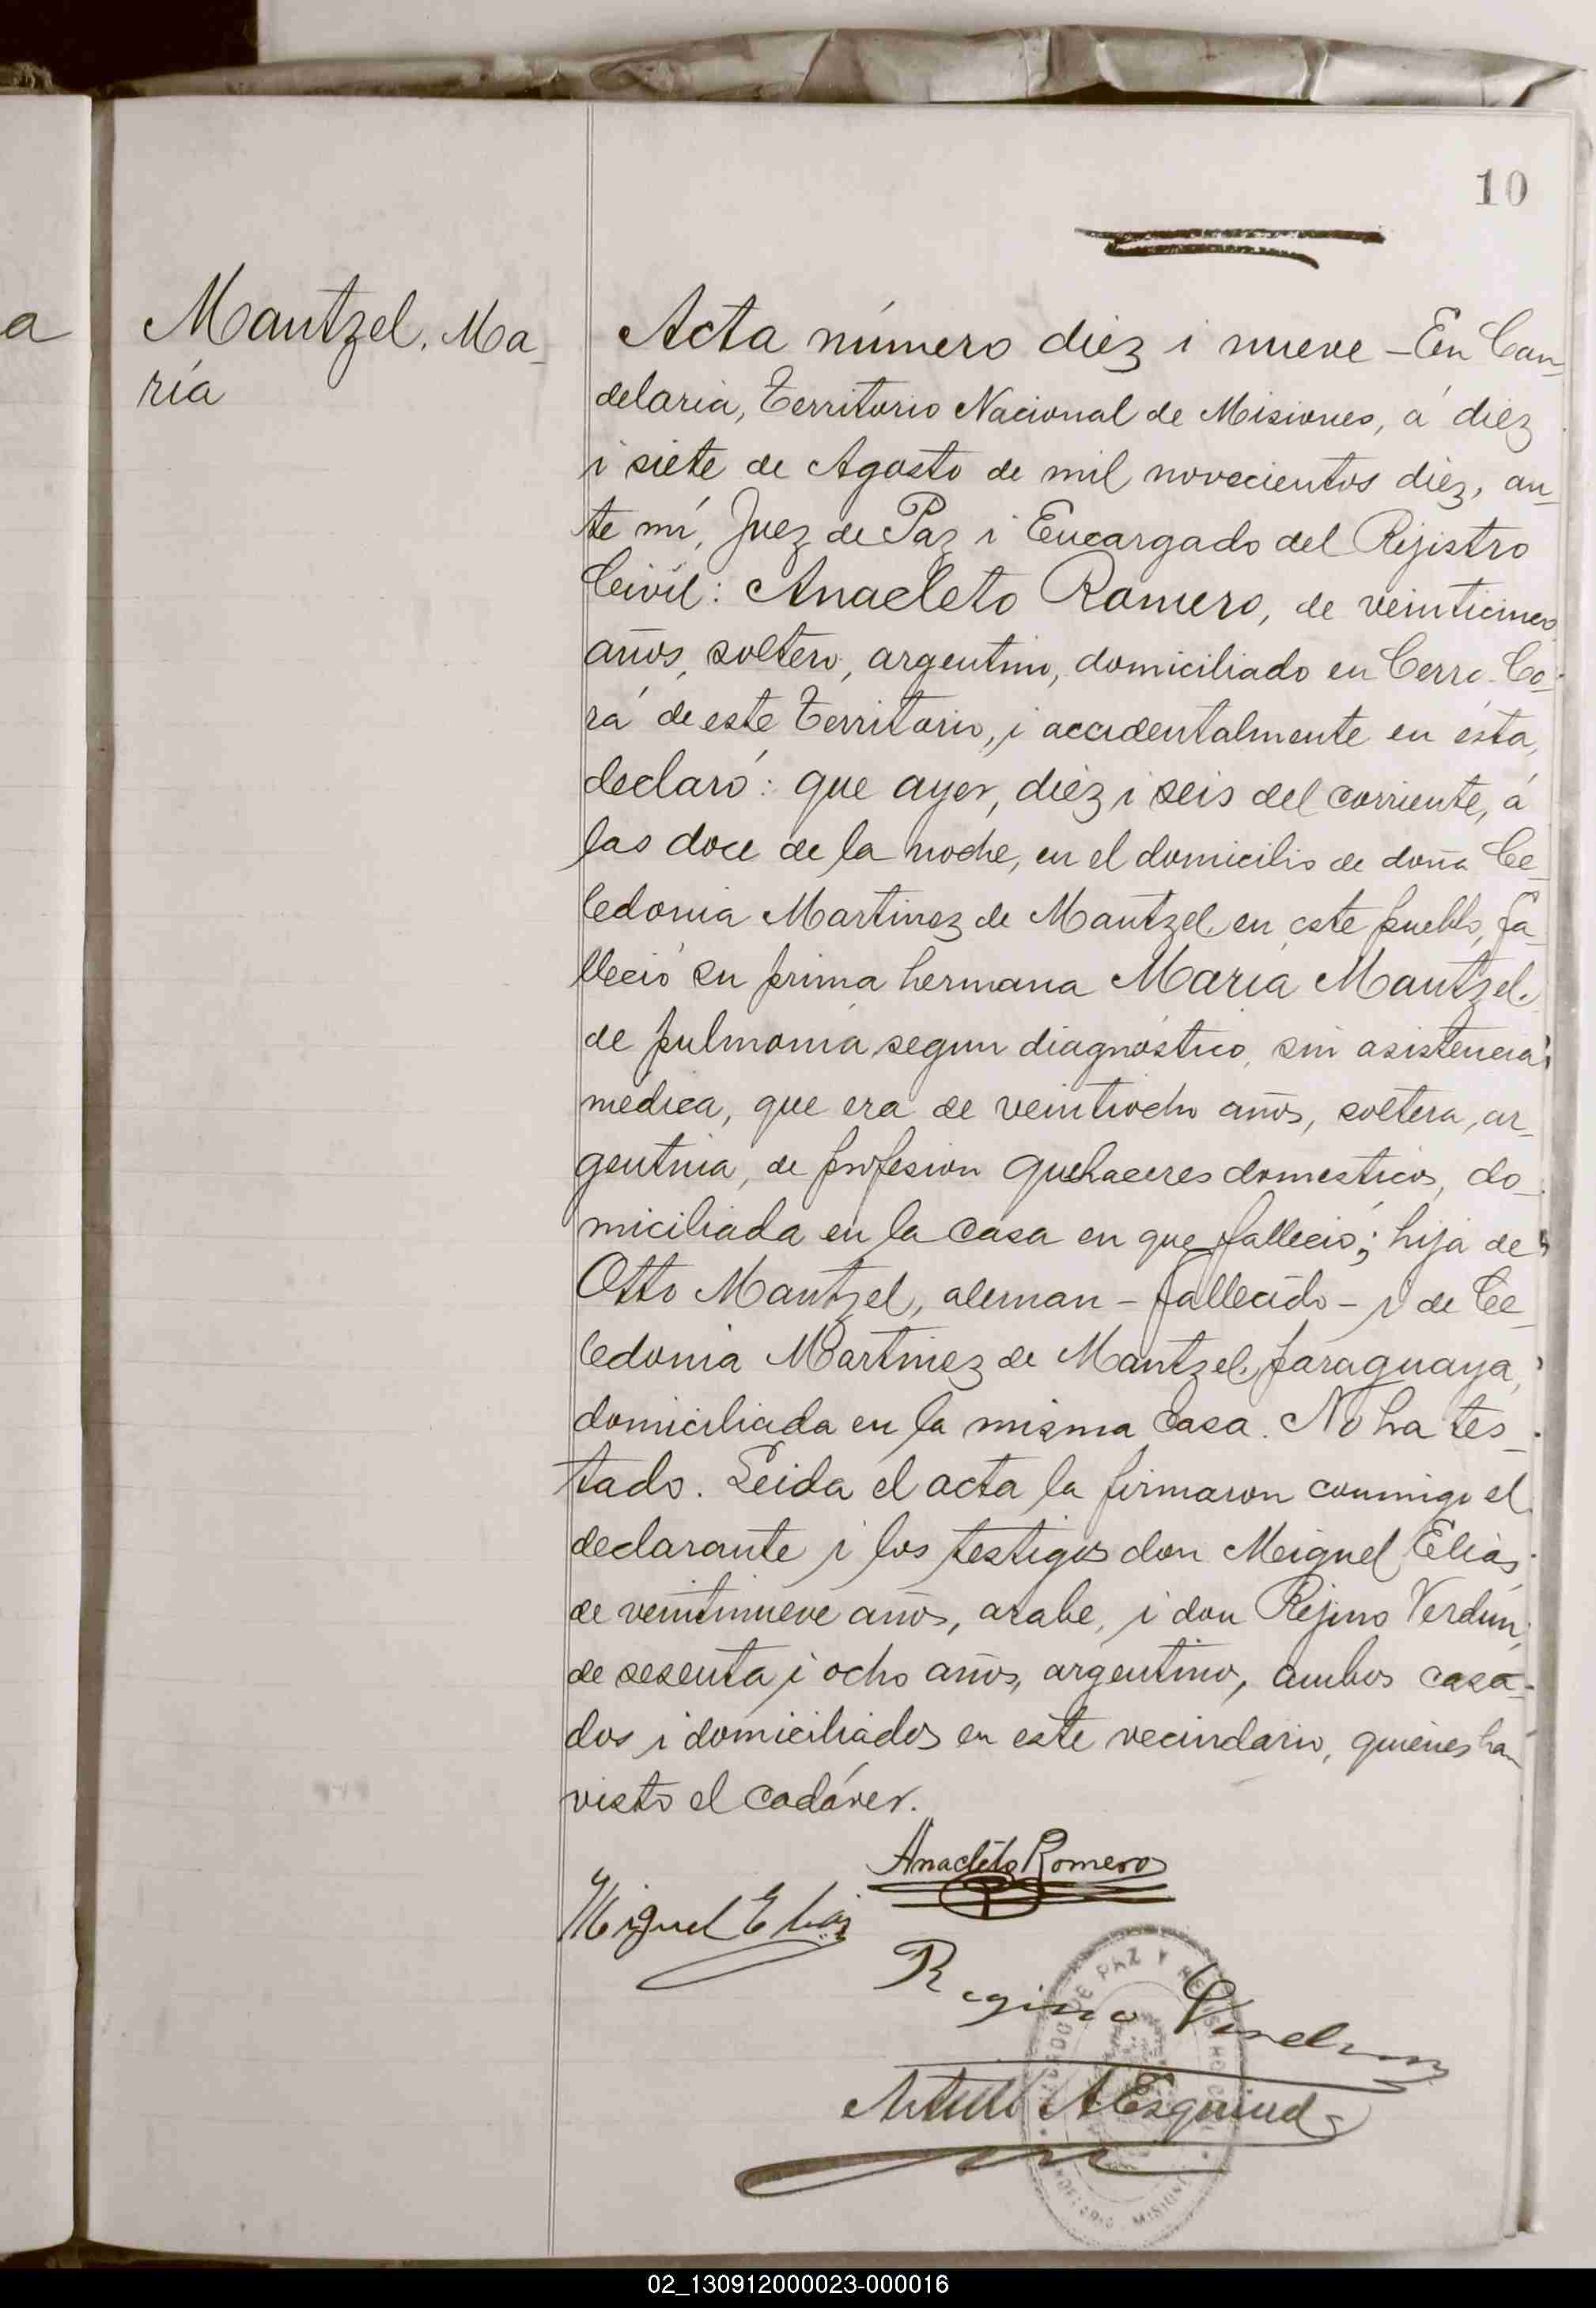 10
a
Mantzel, Ma-
ría
Acta número diéz i nueve - En Can-
delaria, Territorio Nacional de Misiones, á diez
i siete de Agosto de mil novecientos diez, an-
te mí, Juez de Paz i Encargado del Rejistro
Civil: Anacleto Romero, de veinticinco
años, soltero, argentino, domiciliado en Cerro-Co-
rá de este Territorio, i accidentalmente en ésta,
declaró: que ayer, diéz i seis del corriente, á
las doce de la noche, en el domicilio de doña Ce-
ledonia Martinez de Mantzel en este pueblo, fa-
lleció su prima hermana María Mantzel
de pulmonía segun diagnóstico, sin asistencia
médica, que era de veintiocho años, soltera, ar-
gentina, de profesion quehaceres domesticos, do-
miciliada en la casa en que falleció; hija de
Otto Mantzel, aleman - fallecido - i de Ce-
ledonia Martinez de Mantzel, paraguaya,
domiciliada en la misma casa. No ha tes-
tado. Leida el acta la firmaron conmigo el
declarante i los testigos don Miguel Elias,
de veintinueve años, arabe, i don Rejino Verdún,
de sesenta i ocho años, argentino, ambos casa-
dos i domiciliados en este vecindario, quienes han
visto el cadáver.
Anacleto Romero
Miguel Elias
Regino Verdun
A Esquivel
DE PAZ Y
MISIONES
02_130912000023-000016